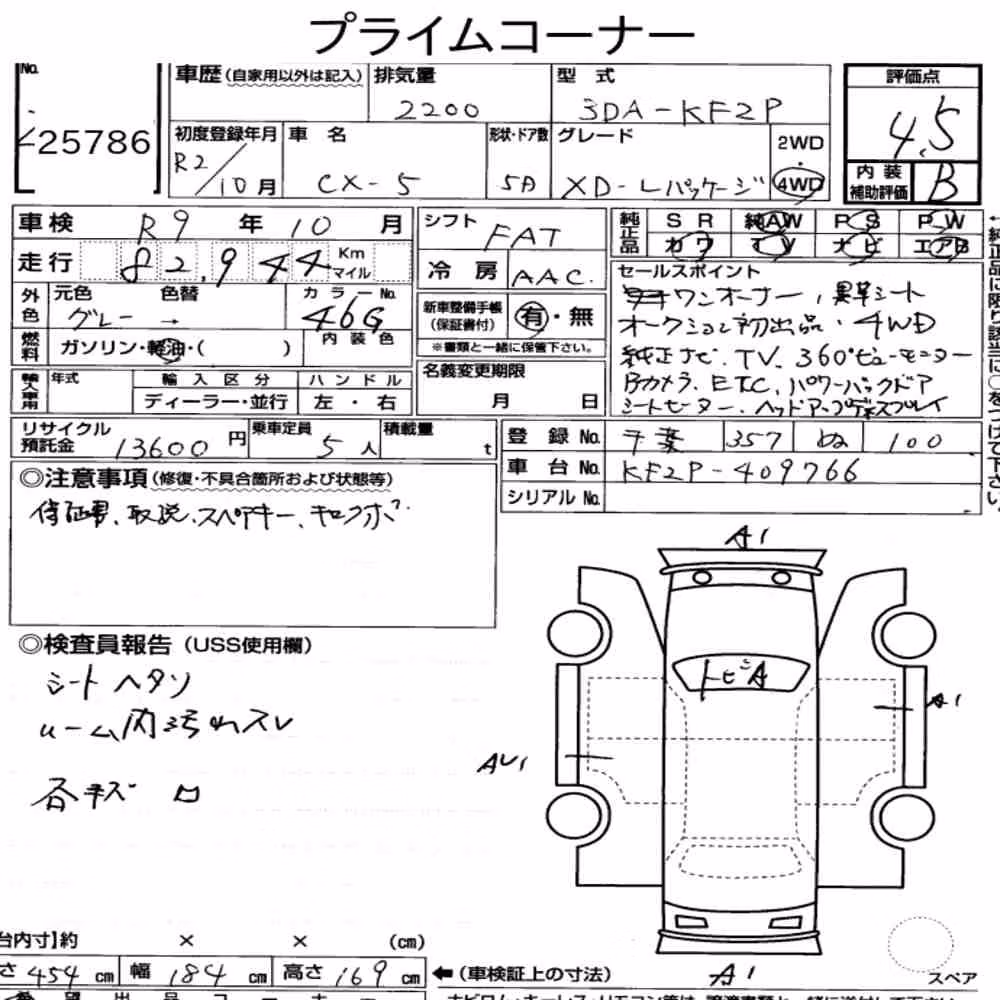 プライムコーナー
No. 25786
車歴(自家用以外は記入) 排気量 2200 型式 3DA-KF2P
評価点 4.5
初度登録年月 R2/10月 車名 CX-5 形状・ドア数 5D グレード XD-Lパッケージ 2WD・4WD
内装補助評価 B
車検 R9年10月
シフト FAT
純正品 SR 純AW PS PW
カワ TV ナビ エアB
走行 82,944 Km マイル
冷房 AAC
セールスポイント
ワンオーナー, 黒革シート
オークション初出品・4WD
純正ナビ. TV. 360°ビューモニター
Bカメラ. ETC. パワーバックドア
シートヒーター. ヘッドアップディスプレイ
外色 元色 グレー 色替 → カラーNo. 46G
新車整備手帳(保証書付) 有・無
※書類と一緒に保管下さい。
燃料 ガソリン・軽油・( ) 内装色
輸入車用 年式 輸入区分 ディーラー・並行 ハンドル 左・右
名義変更期限 月 日
←純正品に限り該当に○をつけて下さい。
リサイクル預託金 13600円 乗車定員 5人 積載量 t
登録No. 千葉 357 ぬ 100
車台No. KF2P-409766
シリアルNo.
◎注意事項(修復・不具合箇所および状態等)
保証書、取説、スペアキー、
◎検査員報告(USS使用欄)
シートヘタリ
ルーム内汚れスレ
各キズ
A1
トビA
A1
AU1
A1
台内寸】約 × × (cm)
さ 454 cm 幅 184 cm 高さ 169 cm
←(車検証上の寸法)
スペア